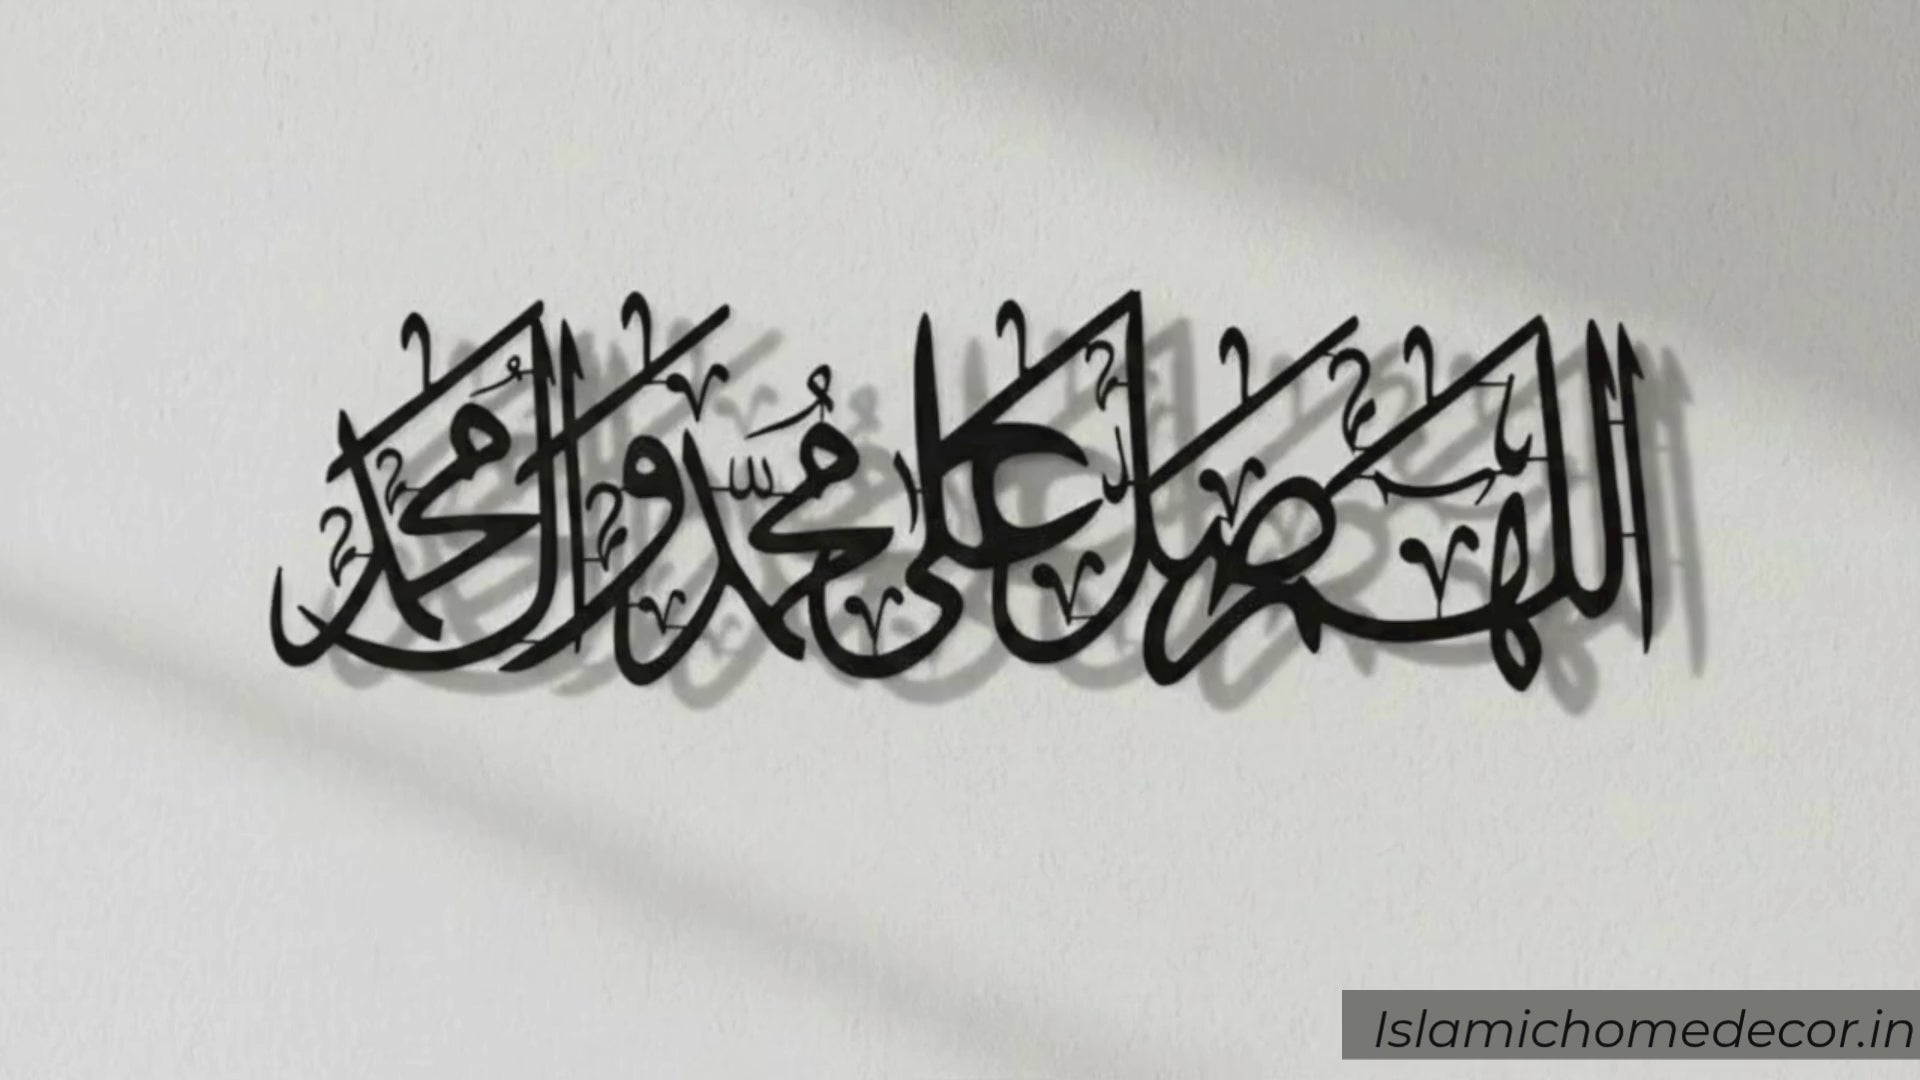 اللهم صل على محمد وال محمد
Islamichomedecor.in